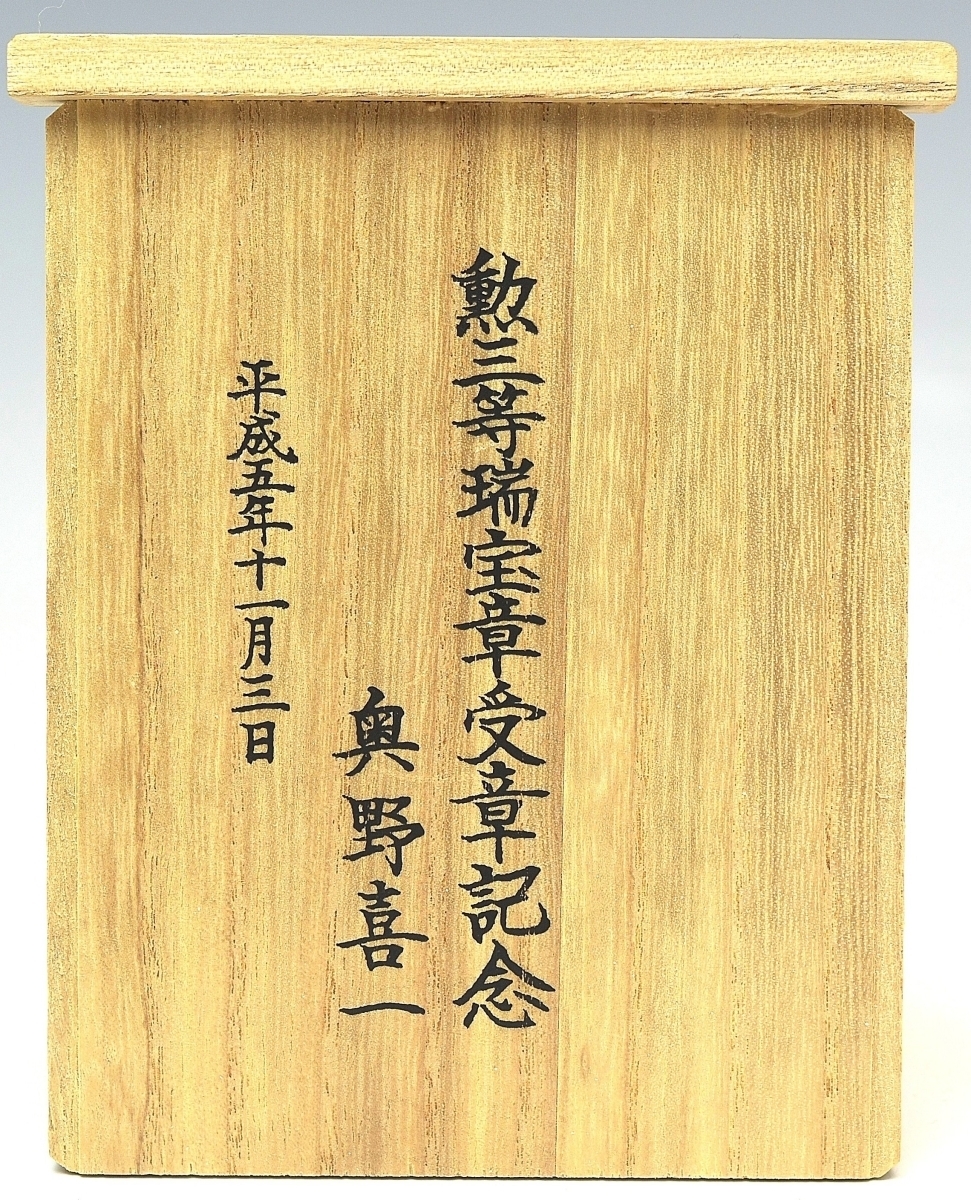 勲三等瑞宝章受章記念
奥野喜一
平成五年十一月三日